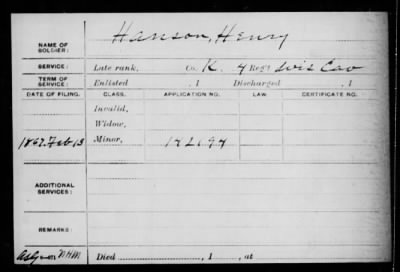 NAME OF SOLDIER: Hanson, Henry
SERVICE: Late rank, Co. K. 4 Reg't Wis Cav
TERM OF SERVICE: Enlisted , 1 Discharged , 1
DATE OF FILING. CLASS. APPLICATION NO. LAW. CERTIFICATE NO.
Invalid,
Widow,
1867. Feb 13 Minor, 142194
ADDITIONAL SERVICES:
REMARKS:
Died , 1 , at